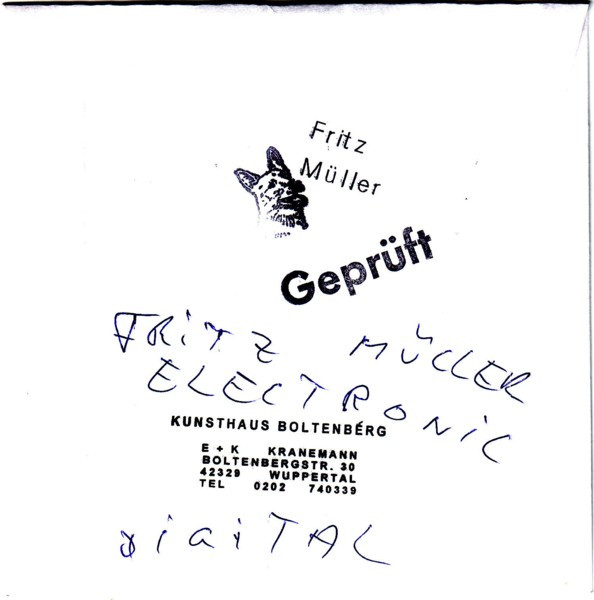 Fritz
Müller
Geprüft
FRiTZ MÜLLER
ELECTRONIC
KUNSTHAUS BOLTENBERG
E + K KRANEMANN
BOLTENBERGSTR. 30
42329 WUPPERTAL
TEL 0202 740339
DiGiTAL